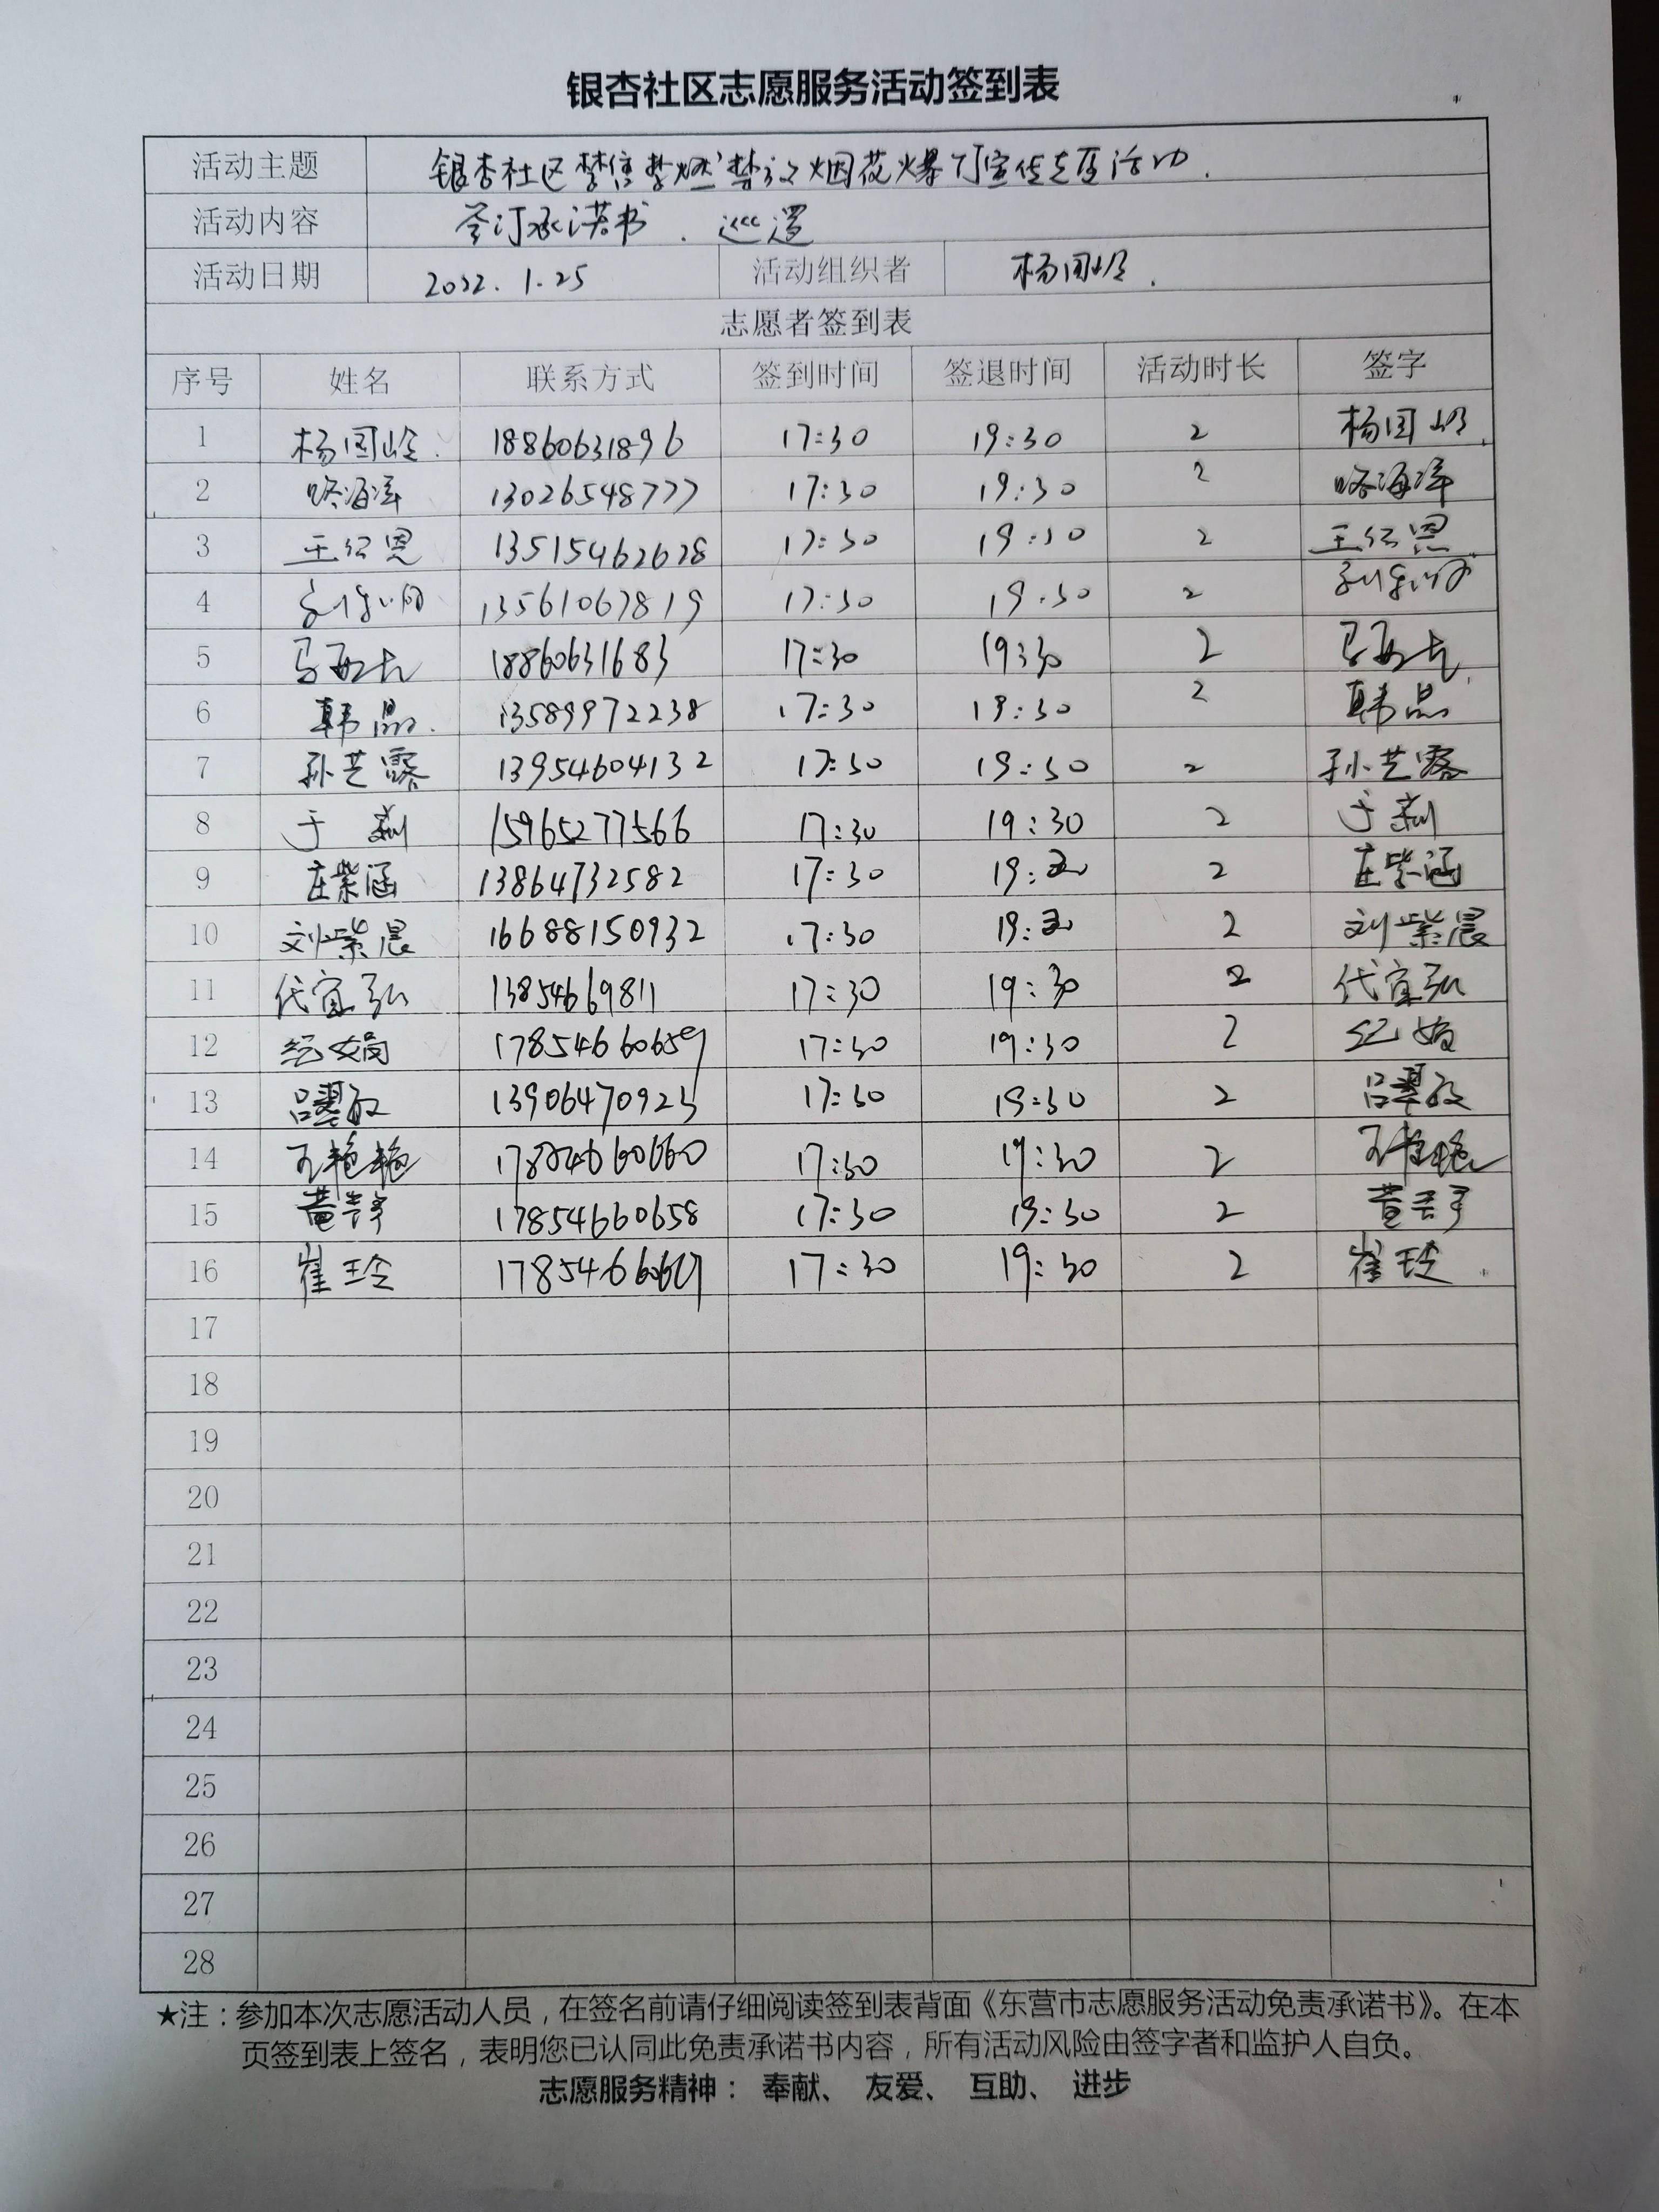 银杏社区志愿服务活动签到表
活动主题 银杏社区禁售禁燃禁放烟花爆竹宣传志愿活动.
活动内容 签订承诺书.巡逻
活动日期 2022.1.25 活动组织者 杨国岭.
志愿者签到表
序号 姓名 联系方式 签到时间 签退时间 活动时长 签字
1 杨国岭. 18860631896 17:30 19:30 2 杨国岭.
2 咯海洋 13026548777 17:30 19:30 2 咯海洋
3 王红恩 13515462628 17:30 19:30 2 王红恩
4 13561067819 17:30 19:30 2
5 18860631683 17:30 19:30 2
6 韩晶. 13589972238 17:30 19:30 2 韩晶
7 孙芝露 13954604132 17:30 19:30 2 孙芝露
8 于莉 15965277566 17:30 19:30 2 于莉
9 庄紫涵 13864732582 17:30 19:30 2 庄紫涵
10 刘紫晨 16688150932 17:30 19:30 2 刘紫晨
11 代宜弘 1385469811 17:30 19:30 2 代宜弘
12 纪娟 17854660659 17:30 19:30 2 纪娟
13 吕翠敏 13906470923 17:30 19:30 2 吕翠敏
14 17:30 19:30 2
15 17854660658 17:30 19:30 2
16 崔玲 17:30 19:30 2 崔玲
17
18
19
20
21
22
23
24
25
26
27
28
★注：参加本次志愿活动人员，在签名前请仔细阅读签到表背面《东营市志愿服务活动免责承诺书》。在本
页签到表上签名，表明您已认同此免责承诺书内容，所有活动风险由签字者和监护人自负。
志愿服务精神： 奉献、 友爱、 互助、 进步